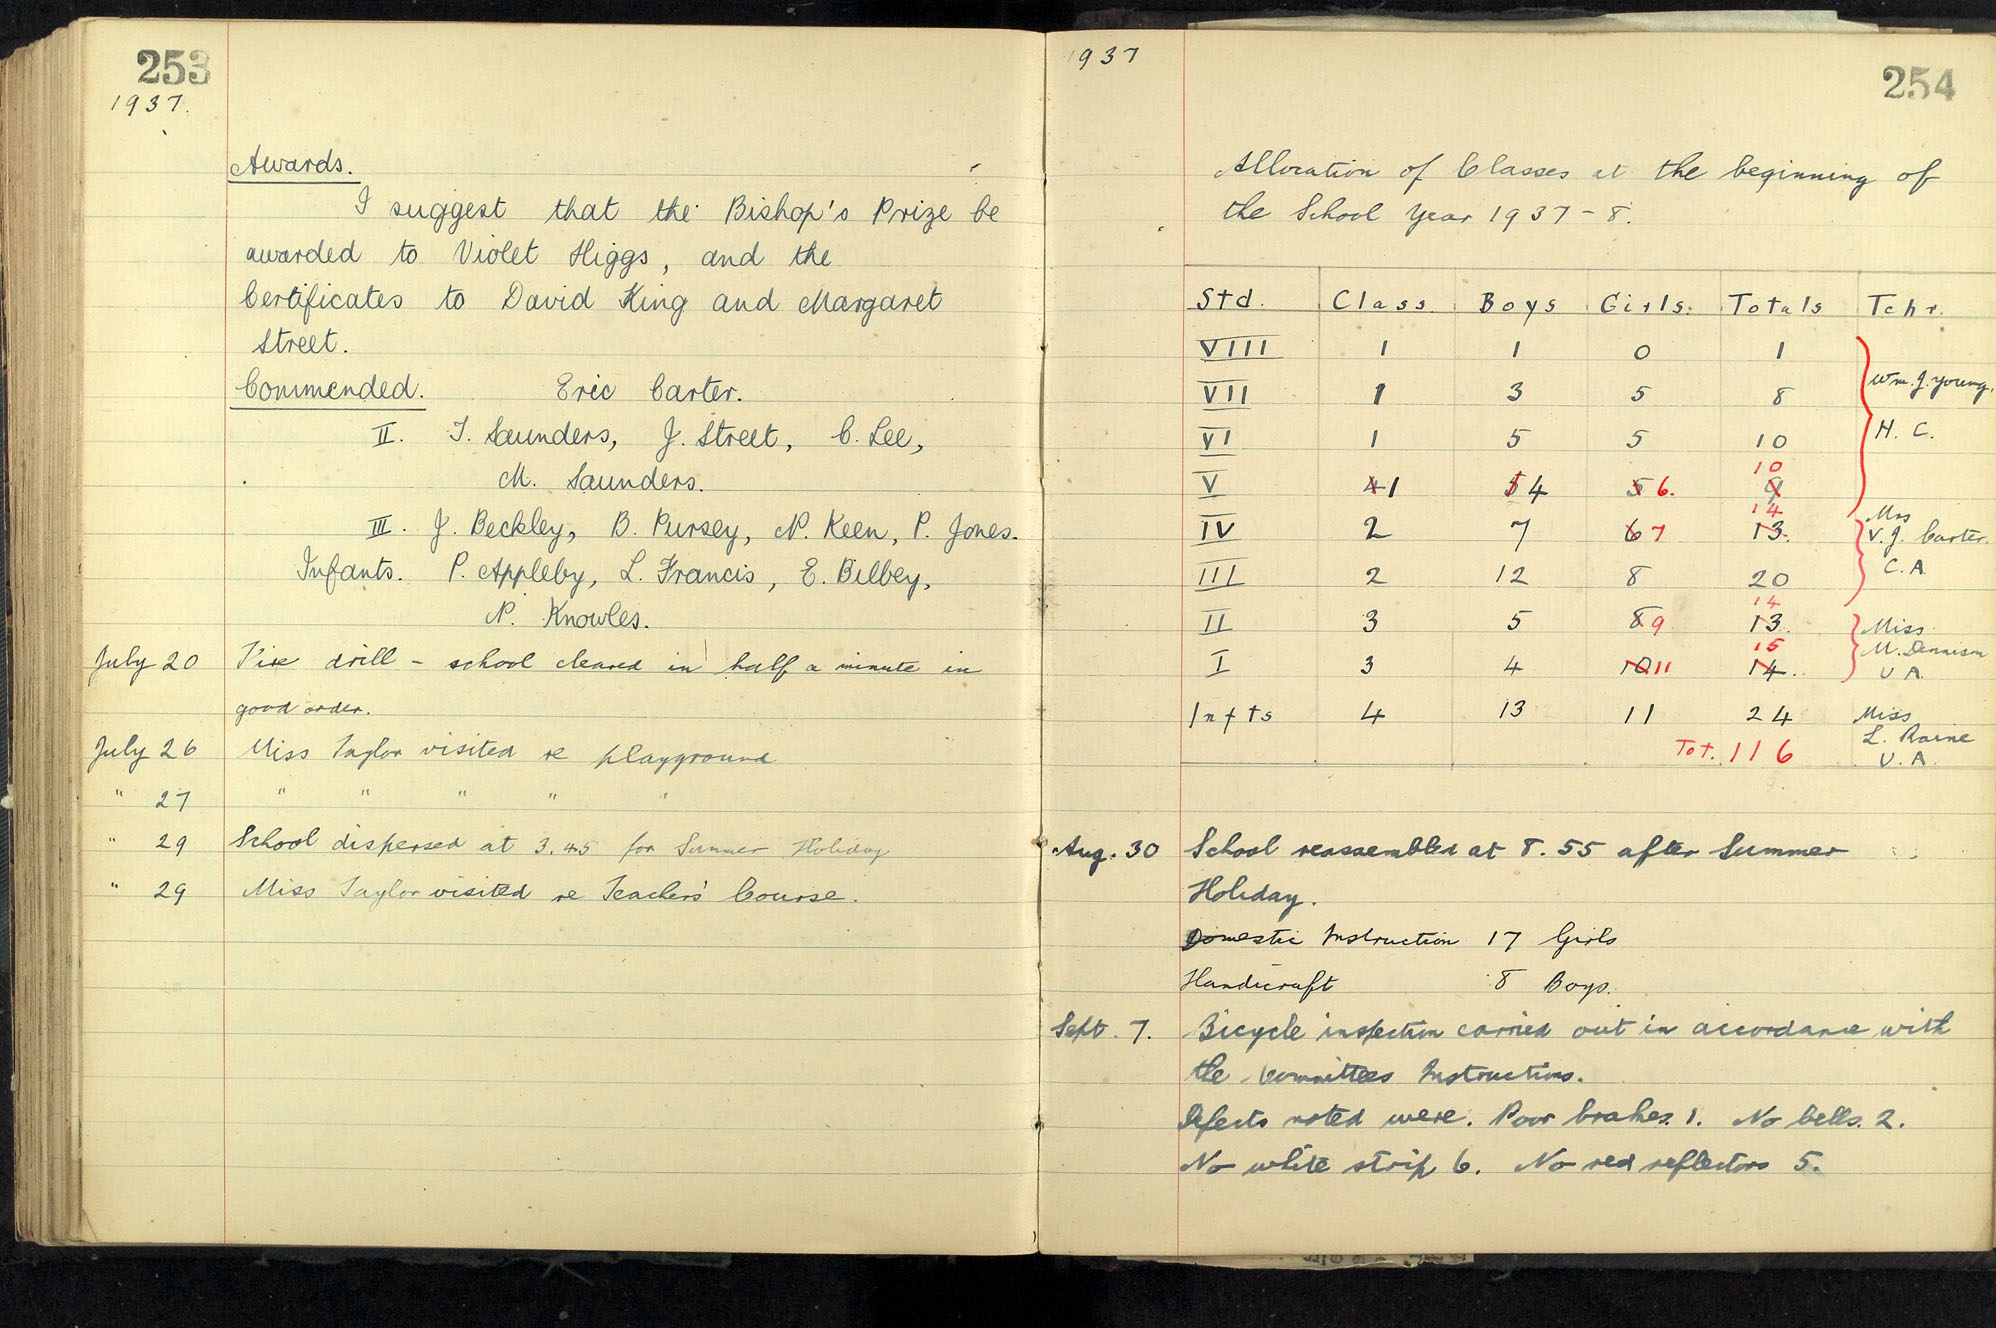 253
1937.
Awards.
I suggest that the Bishop's Prize be
awarded to Violet Higgs, and the
Certificates to David King and Margaret
Street.
Commended. Eric Carter.
II. I. Saunders, J. Street, C. Lee,
M. Saunders.
III. J. Beckley, B. Pursey, N. Keen, P. Jones.
Infants. P. Appleby, L. Francis, E. Bilbey,
N. Knowles.
July 20 Fire drill - school cleared in half a minute in
good order.
July 26 Miss Taylor visited re playground
" 27 " " " " "
" 29 School dispersed at 3.45 for Summer Holiday
" 29 Miss Taylor visited re Teachers' Course.
1937
254
Allocation of Classes at the beginning of
the School Year 1937-8.
Std. Class. Boys Girls. Totals Tchr.
VIII 1 1 0 1
VII 1 3 5 8 Wm. J. Young.
VI 1 5 5 10 H. C.
10
V 4 1 5 4 5 6. 9
14 Mrs
IV 2 7 6 7 13. V. J. Carter.
III 2 12 8 20 C. A.
14
II 3 5 8. 9 13. Miss
15 M. Dennison
I 3 4 10 11 14. U A.
Infts 4 13 11 24 Miss
L. Raine
Tot. 116 U. A.
Aug. 30 School reassembled at 8.55 after Summer
Holiday.
Domestic Instruction 17 Girls
Handicraft 8 Boys.
Sept. 7. Bicycle inspection carried out in accordance with
the Committees Instructions.
Defects noted were. Poor brakes. 1. No bells. 2.
No white strip 6. No red reflectors 5.